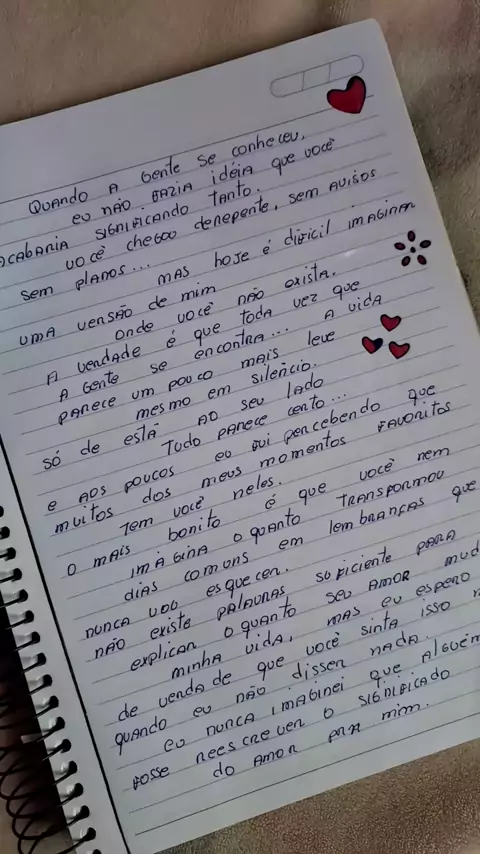 Quando A Gente se conheceu,
eu não fazia idéia que você
acabaria significando tanto.
você chegou derepente, sem avisos
sem planos...
mas hoje é dificil imaginar
uma versão de mim
onde você não exista.
A verdade é que toda vez que
A Gente se encontra... A vida
parece um pouco mais leve
mesmo em silêncio.
só de está ao seu lado
Tudo parece certo...
e aos poucos eu fui percebendo que
muitos dos meus momentos favoritos
Tem você neles.
o mais bonito é que você nem
imagina o quanto transformou
dias comuns em lembranças que
nunca vou esquecer.
não existe palavras suficiente para
explicar o quanto seu amor
minha vida, mas eu espero
de verdade que você sinta isso
quando eu não disser nada.
eu nunca imaginei que alguém
fosse reescrever o significado
do amor pra mim.